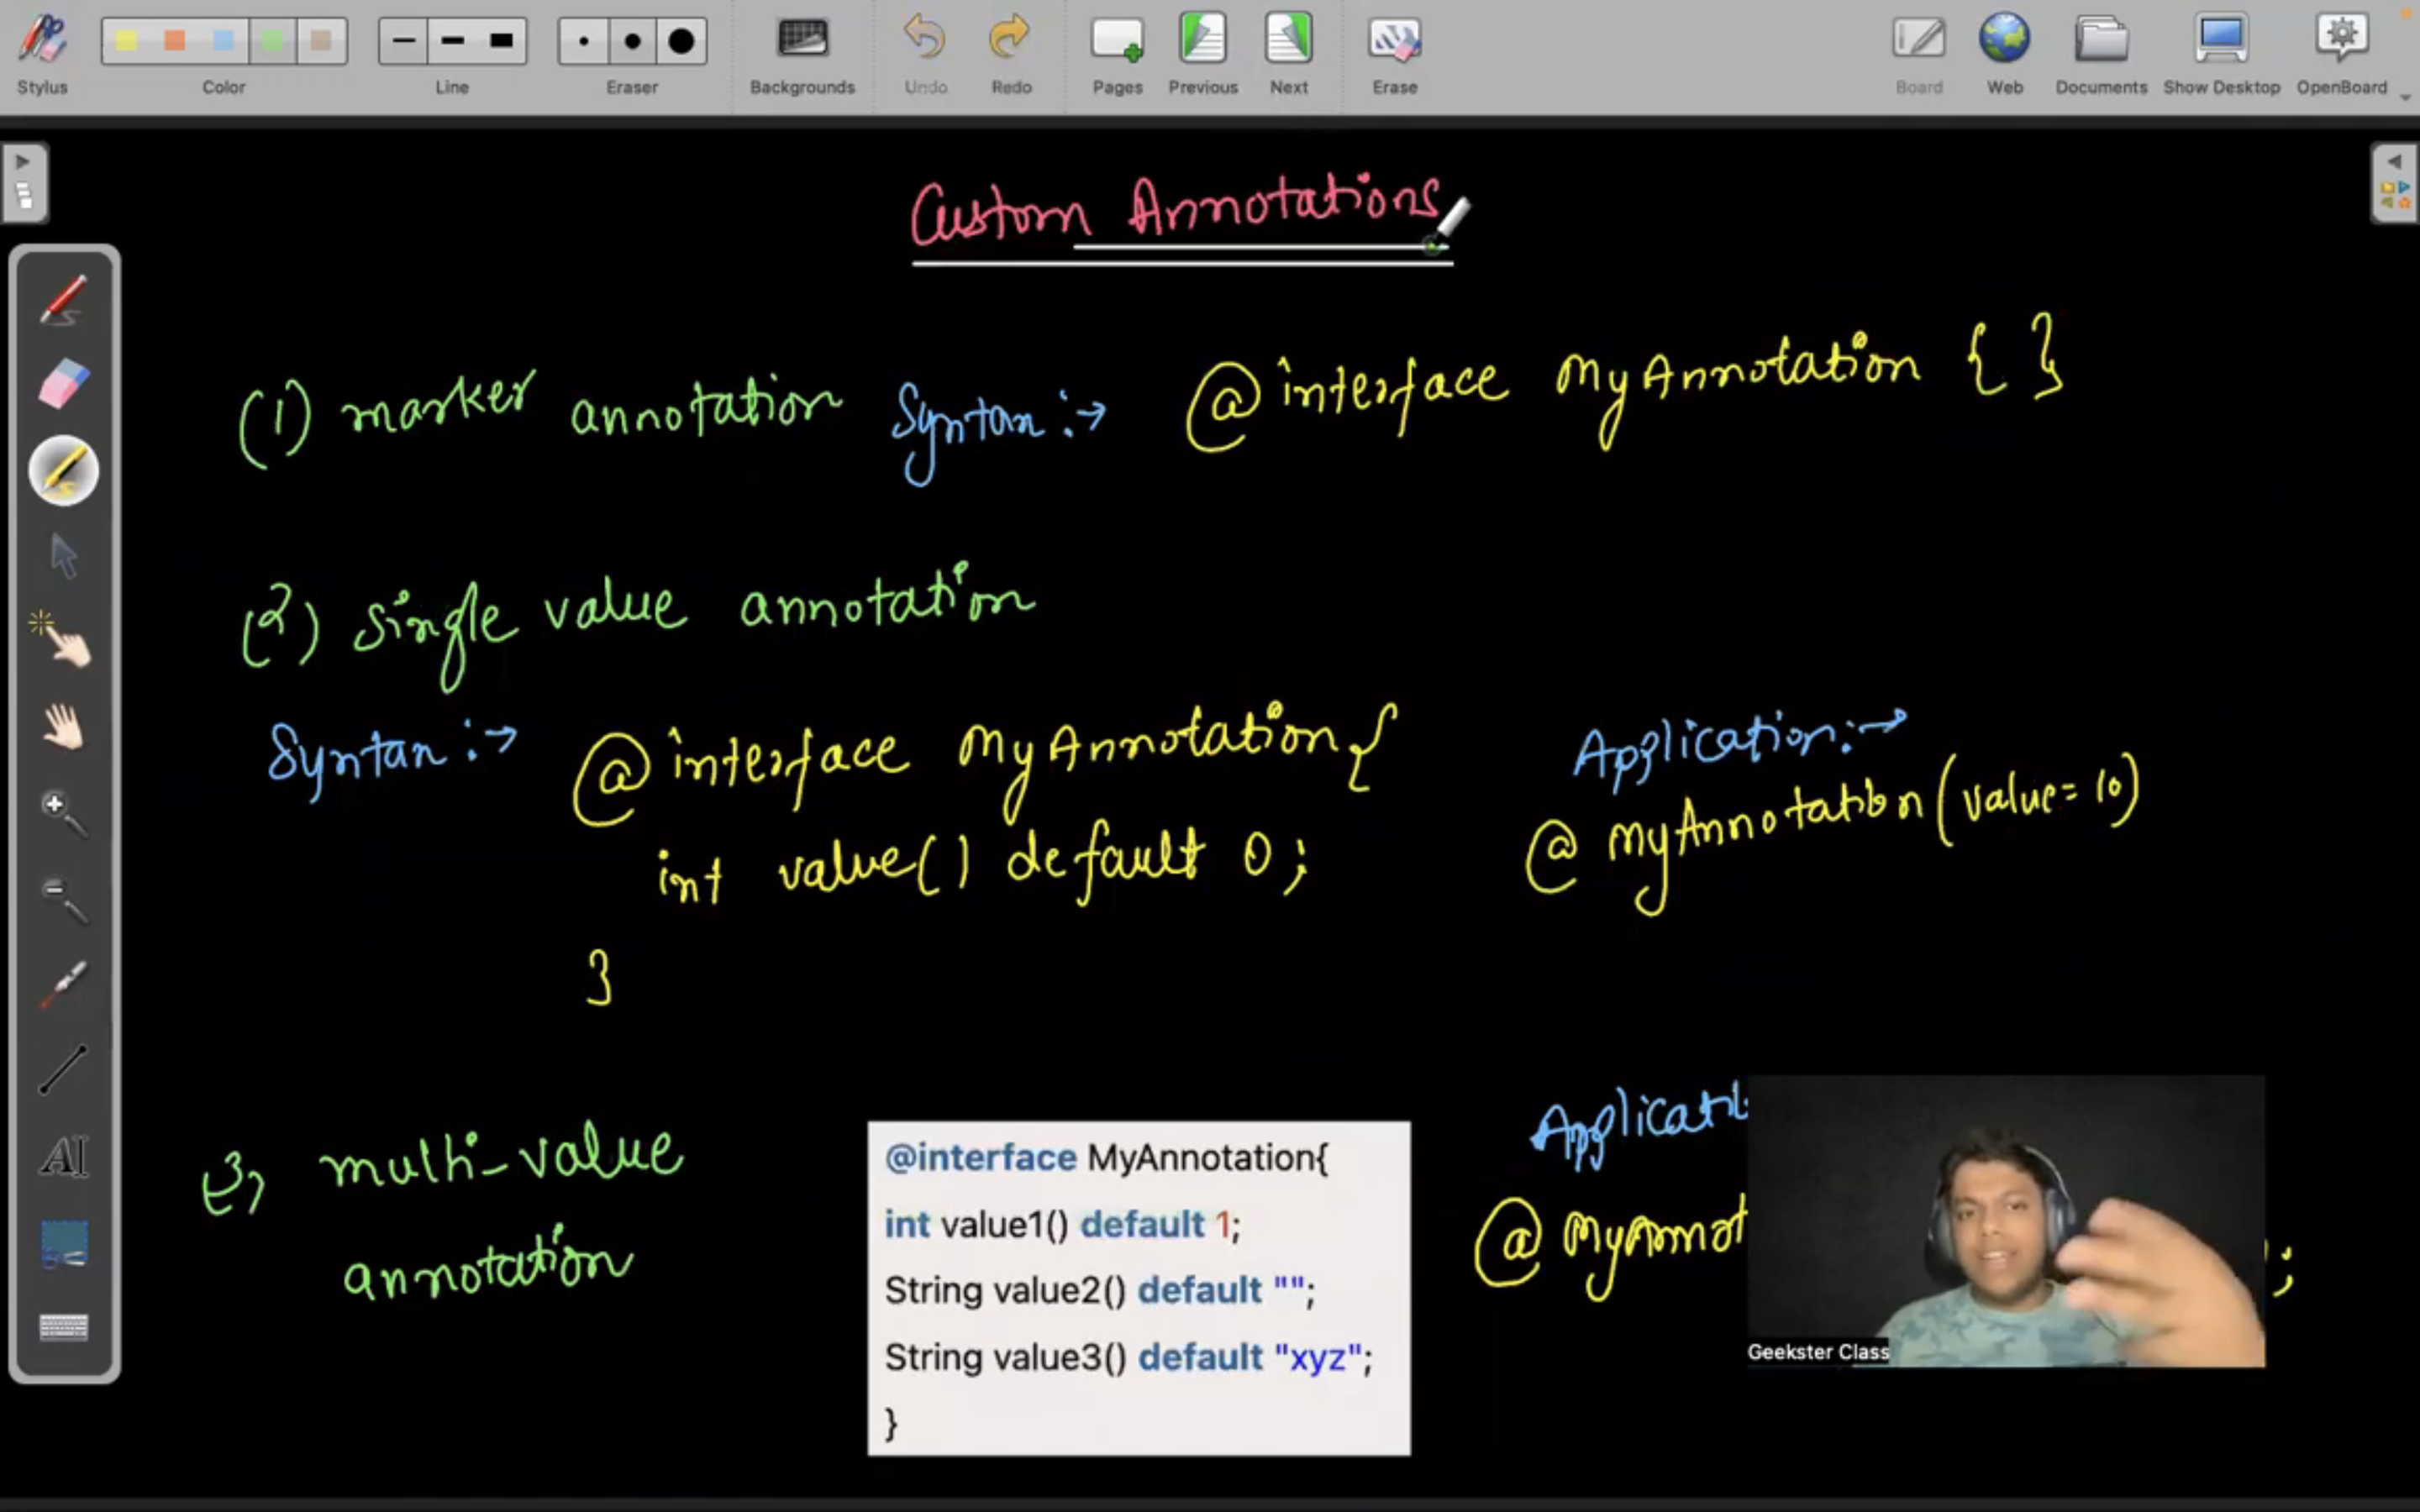 Stylus Color Line Eraser Backgrounds Undo Redo Pages Previous Next Erase Board Web Documents Show Desktop OpenBoard
Custom Annotations
(1) marker annotation Syntax :→ @interface MyAnnotation { }
(2) single value annotation
Syntax :→ @interface MyAnnotation{
int value() default 0;
}
Application :→
@MyAnnotation(value=10)
(3) multi-value
annotation
@interface MyAnnotation{
int value1() default 1;
String value2() default "";
String value3() default "xyz";
}
Applicati
@MyAnnot
;
Geekster Class
AI